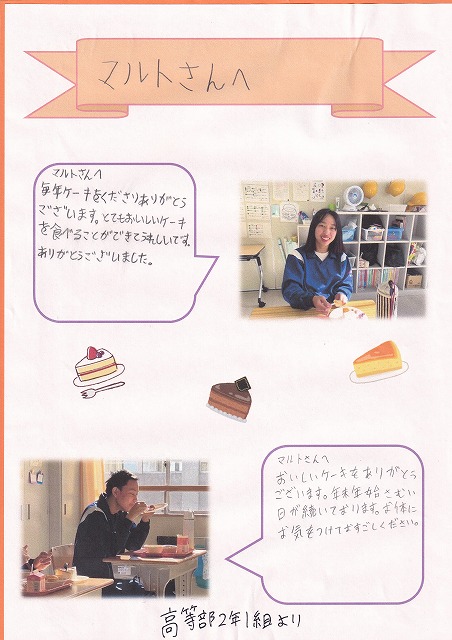 マルトさんへ
マルトさんへ
毎年ケーキをくださりありがとう
ございます。とてもおいしいケーキ
を食べることができてうれしいです。
ありがとうございました。
マルトさんへ
おいしいケーキをありがとう
ございます。年末年始さむい
日が続いております。お体に
お気をつけておすごしください。
高等部2年1組より